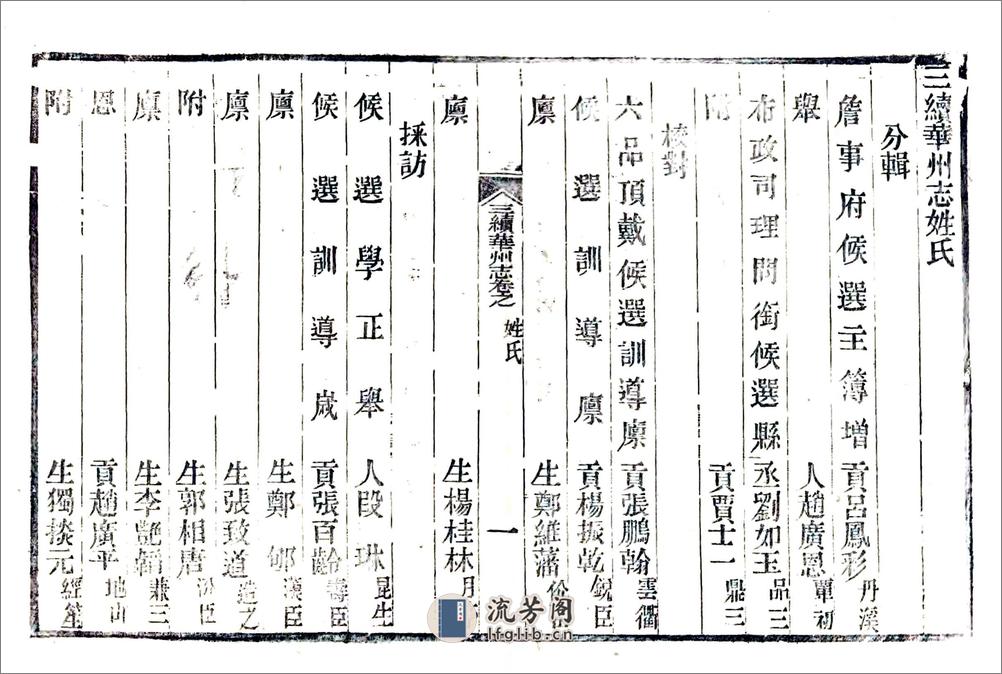 三續華州志姓氏
分輯
詹事府候選主簿增貢呂鳳彩丹溪
舉人趙廣恩覃初
布政司理問銜候選縣丞劉如玉品三
附貢賈士一鼎三
校對
六品頂戴候選訓導廩貢張鵬翰雲衢
候選訓導廩貢楊振乾銳臣
廩生鄭維藩
三續華州志卷之 姓氏 一
廩生楊桂林月
採訪
候選學正舉人段琳昆生
候選訓導歲貢張百齡壽臣
廩生鄭
廩生張致道造之
附生郭相唐
廩生李艷福兼三
恩貢趙廣平地山
附生獨掞元經笙
流芳阁
lfglib.cn